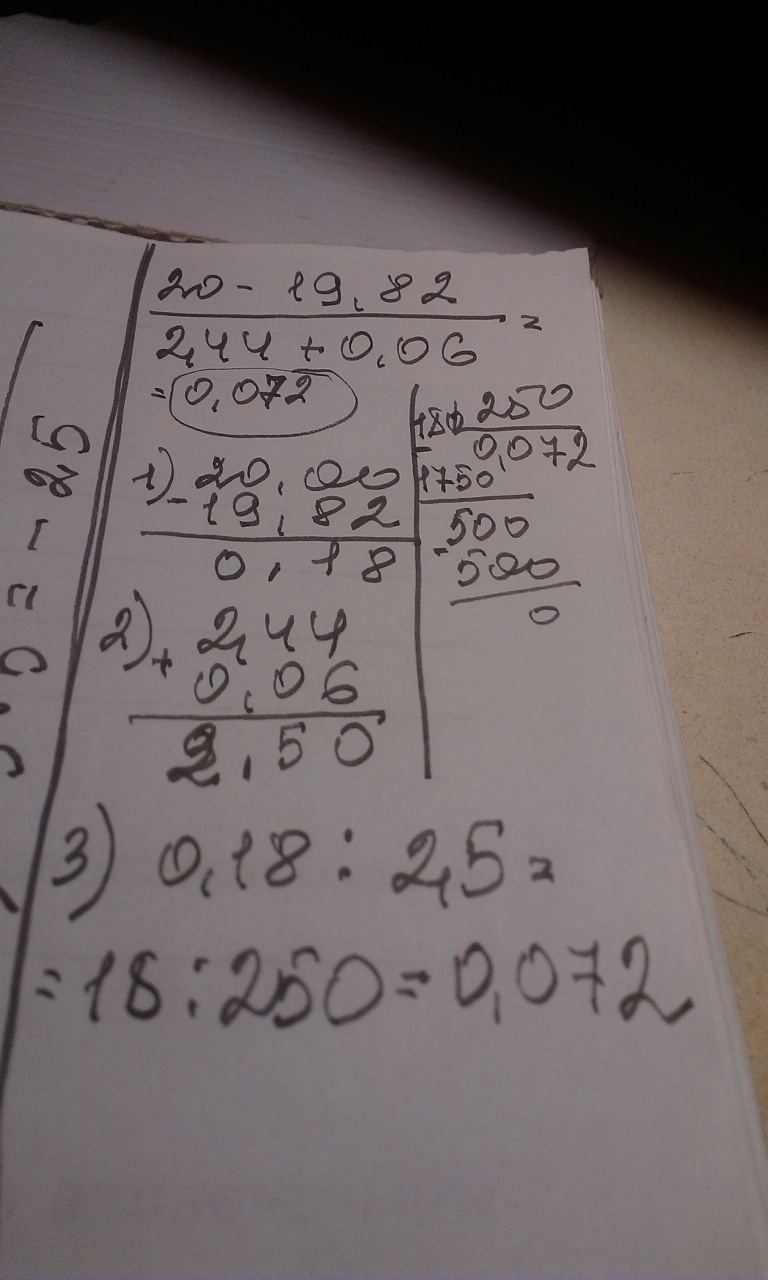 20 - 19,82
2,44 + 0,06 =
= 0,072
1) 20,00
- 19,82
0,18
2) + 2,44
0,06
2,50
250
0,072
- 1750
500
- 500
0
3) 0,18 : 2,5 =
= 18 : 250 = 0,072
= - 25